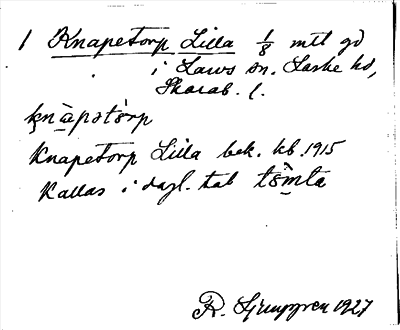 1 Knapetorp Lilla 1/8 mtl gd
i Laws sn. Laske hd,
Skarab. l.
k̨nàpətòrp
Knapetorp Lilla bek. kb. 1915
Kallas i dagl. tal tòmta
R. Ljunggren 1927